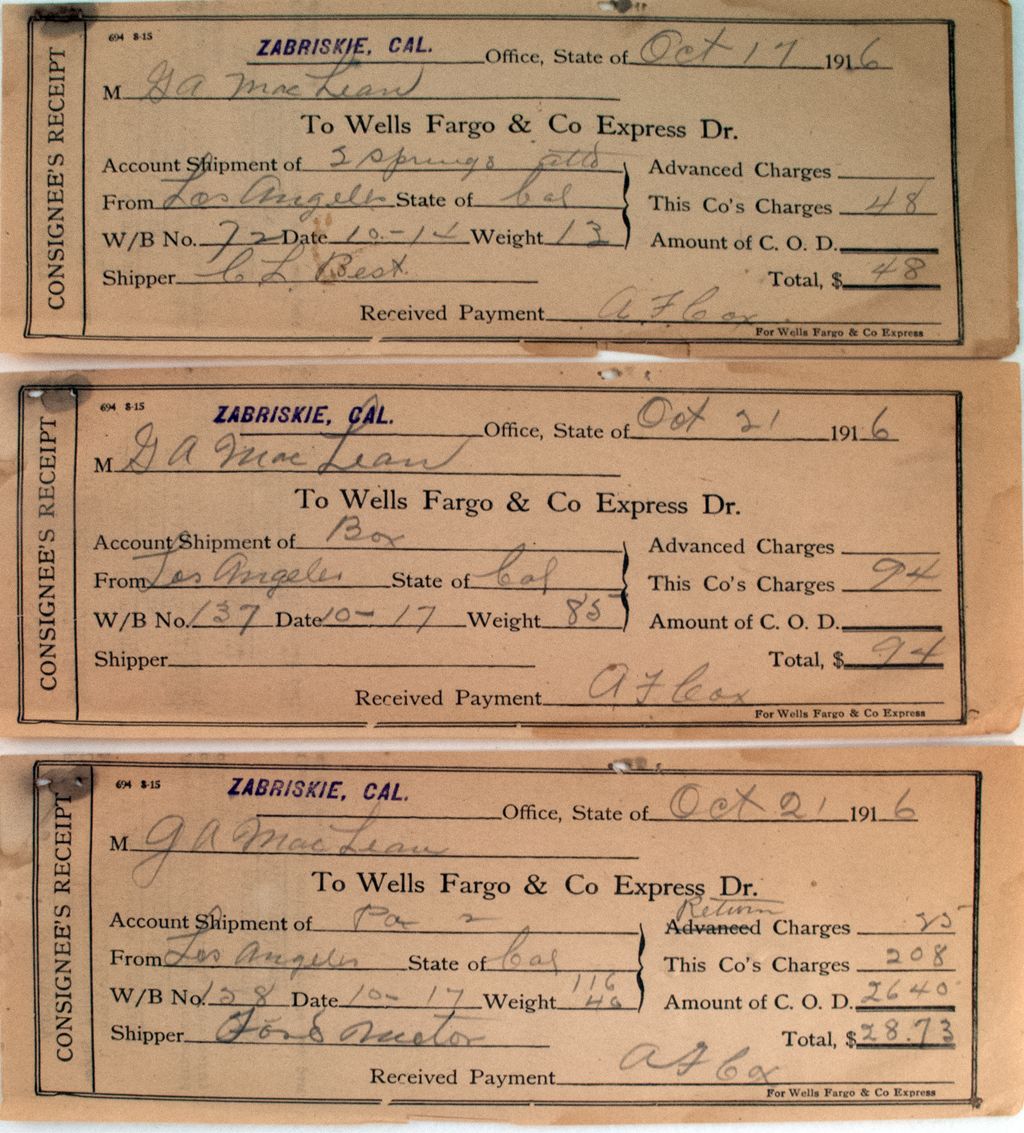 CONSIGNEE'S RECEIPT
694 8-15
ZABRISKIE, CAL. Office, State of Oct 17 1916
M G A MacLean
To Wells Fargo & Co Express Dr.
Account Shipment of 2 Springs
Advanced Charges
From Los Angeles State of Cal
This Co's Charges 48
W/B No. 72 Date 10-14 Weight 13
Amount of C. O. D.
Shipper C L Best
Total, $ 48
Received Payment A F Cox
For Wells Fargo & Co Express
CONSIGNEE'S RECEIPT
694 8-15
ZABRISKIE, CAL. Office, State of Oct 21 1916
M G A MacLean
To Wells Fargo & Co Express Dr.
Account Shipment of Box
Advanced Charges
From Los Angeles State of Cal
This Co's Charges 94
W/B No. 137 Date 10-17 Weight 85
Amount of C. O. D.
Shipper
Total, $ 94
Received Payment A F Cox
For Wells Fargo & Co Express
CONSIGNEE'S RECEIPT
694 8-15
ZABRISKIE, CAL. Office, State of Oct 21 1916
M G A MacLean
To Wells Fargo & Co Express Dr.
Return
Account Shipment of 2
Advanced Charges 25
From Los Angeles State of Cal
This Co's Charges 208
W/B No. 138 Date 10-17 Weight 116
46
Amount of C. O. D. 2640
Shipper Ford Motor
Total, $ 28.73
Received Payment A F Cox
For Wells Fargo & Co Express